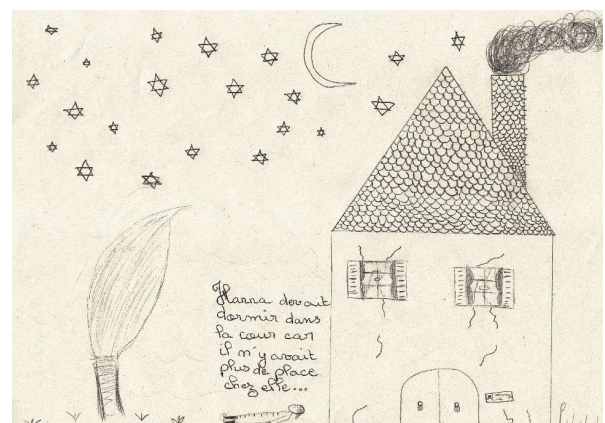 Hanna devait
dormir dans
la cour car
il n'y avait
plus de place
chez elle...